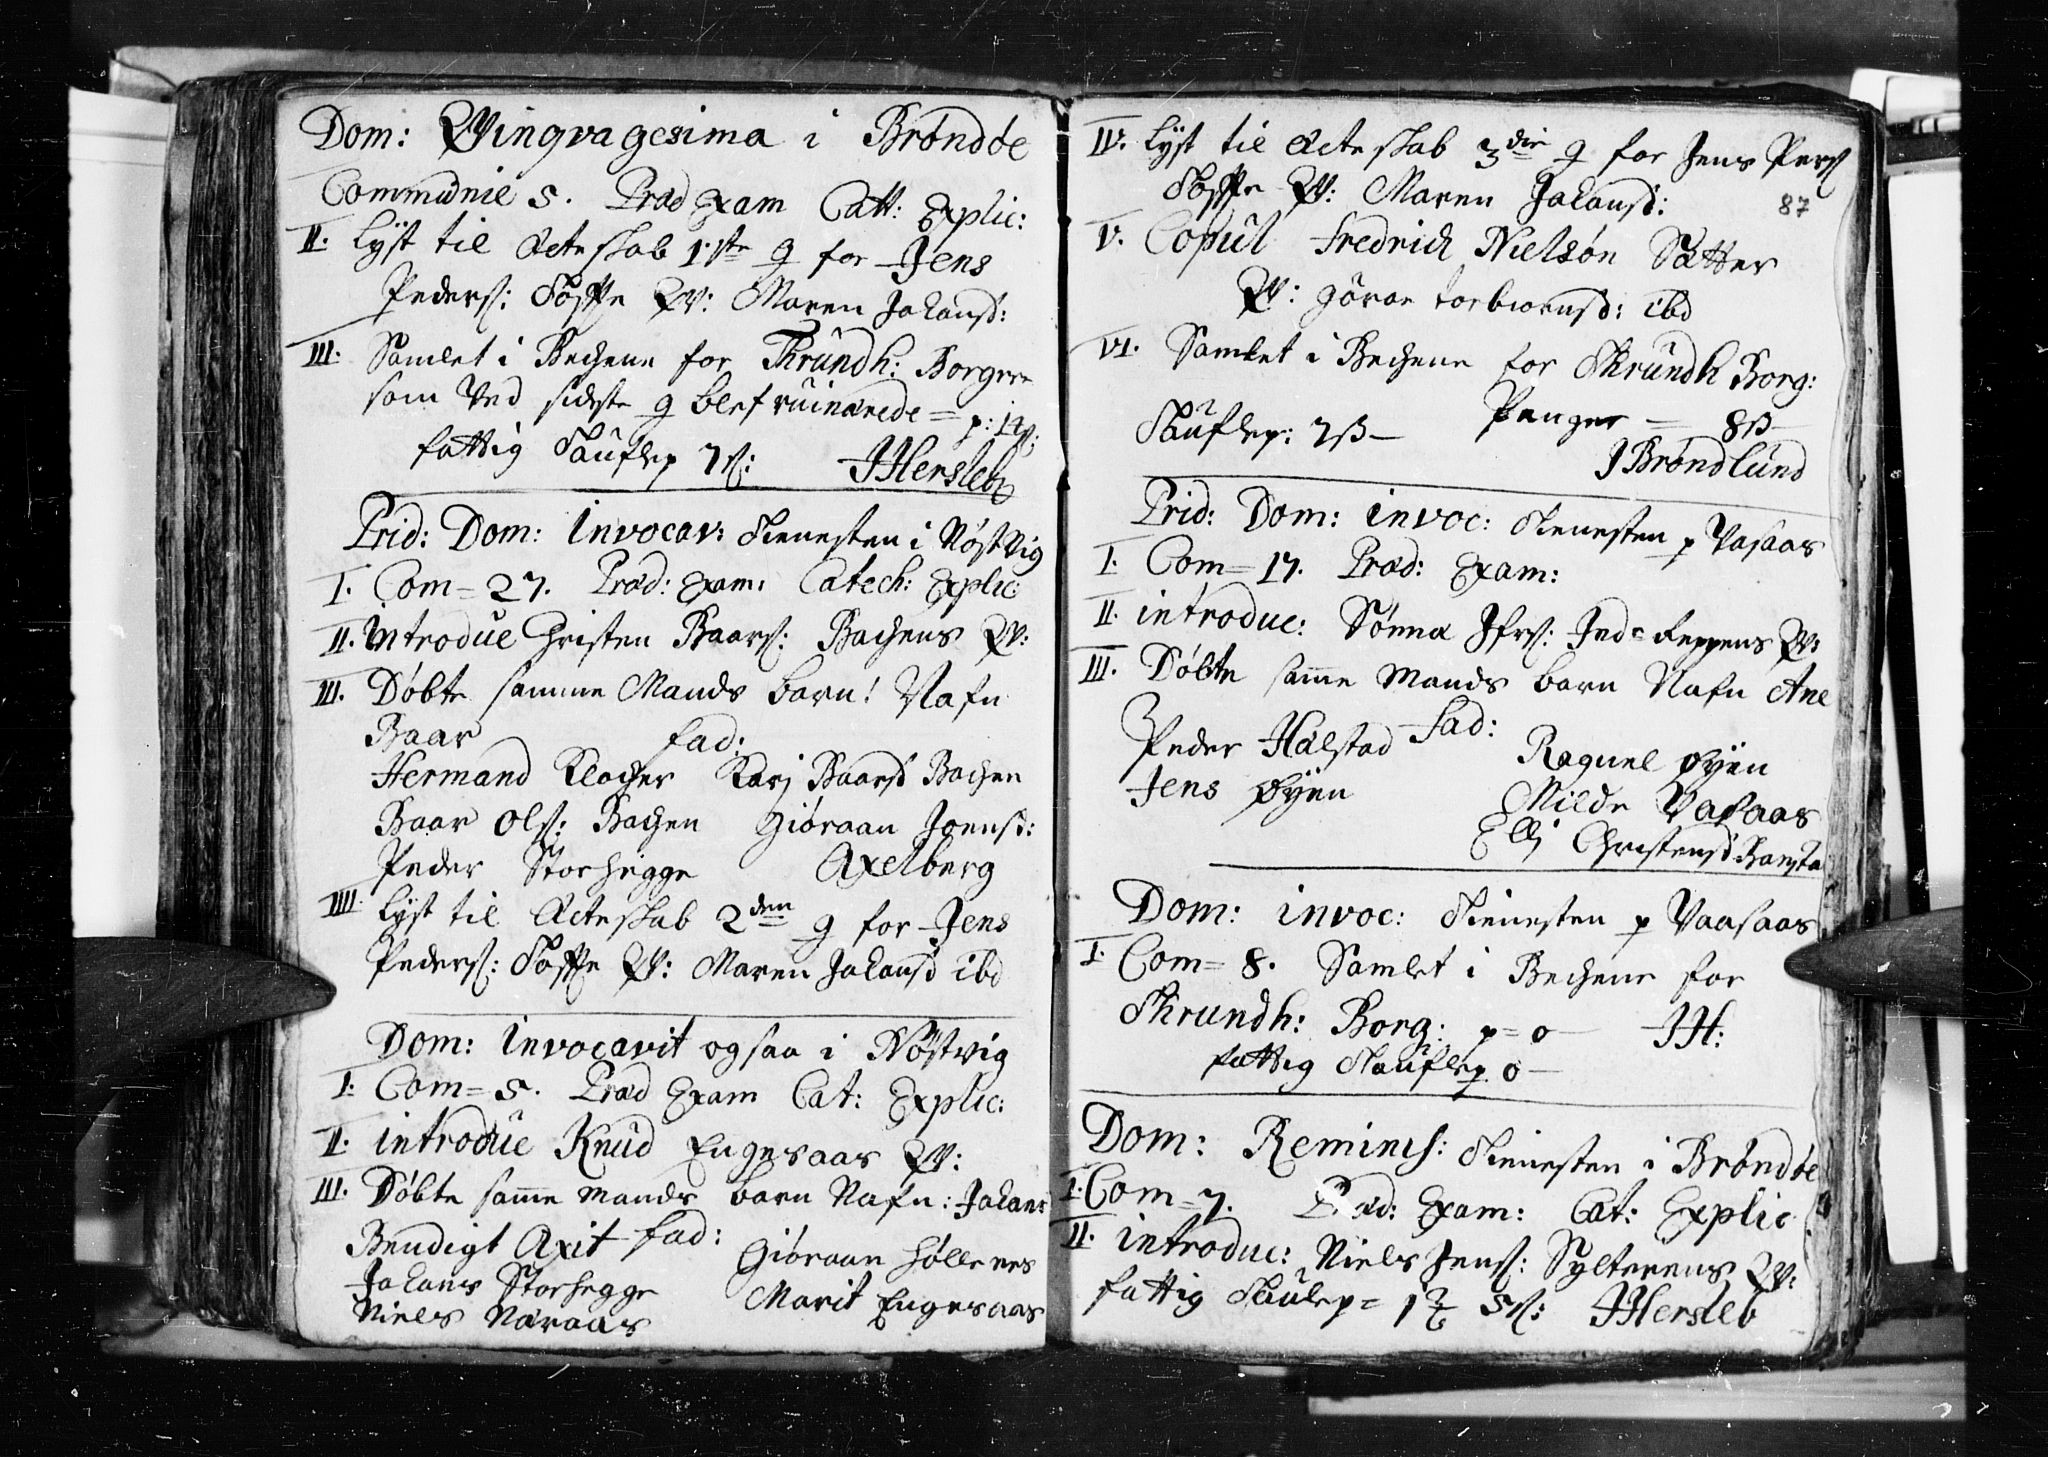 Dom: Qvingvagesima i Brøndøe
Communie 5. Præd Exam Catt: Explic:
II. lyst til Ecteskab 1.ste g for Jens
Peders: Qv: Maren Johansd:
III. Samlet i Bechene for Thrundh: Borgere
som Ved sidste g blef ruinerede = p:
fattig 7 s: JHersleb
Prid: Dom: Invocav: Tienesten i Nøstvig
I. Com = 27. Præd: Exam: Catech: Explic:
II. introdue Christen Baars: Bachens Qv:
III. Døbte samme Mands barn! Nafn
Baar fad:
Hermand Klocher Karj Baarsd Bachen
Baar Ols: Bachen Giøraan Joensd:
Peder Storhegge Axelberg
IIII. lyst til Ecteskab 2den g for Jens
Peders: Qv: Maren Johansd ibd
Dom: Invocavit ogsaa i Nøstvig
I: Com = 5. Præd Exam Cat: Explic:
II. introdue Knud Engesaas Qv:
III. Døbte same mands barn Nafn: Johans
Bendigt Axit fad: Giøraan Høllenes
Johans Storhegge Marit Engesaas
Niels Naraas
IV. lyst til Ecteskab 3die g for Jens Pers
Qv: Maren Johansd:
87
V. Copul fredrich Nielsøn Sætter
Qv: gøroe torbiornsd: ibd
VI. Samlet i Bechene for Thrundh Borg:
Penger = 8ß
Taufler: 7ß
J Brøndlund
Prid: Dom: invoc: Tienesten p Vasaas
I. Com = 17. Præd: Exam:
II. introduc: Sønna Ifrs: Ind= Reppens Qv:
III. Døbte same mands barn Nafn Ane
Peder Halstad fad: Raquel Øyen
Jens Øyen Milde Vasaas
Ellj Christensd
Dom: invoc: Tienesten p Vaasaas
I. Com = 8. Samlet i Bechene for
Thrundh: Borg: p = 0 JH:
fattig 0
Dom: Reminis: Tienesten i Brøndøe
I. Com = 7. Præd: Exam: Cat: Explic
II. introduc: Niels Jens: Sylterens Qv:
fattig JHersleb